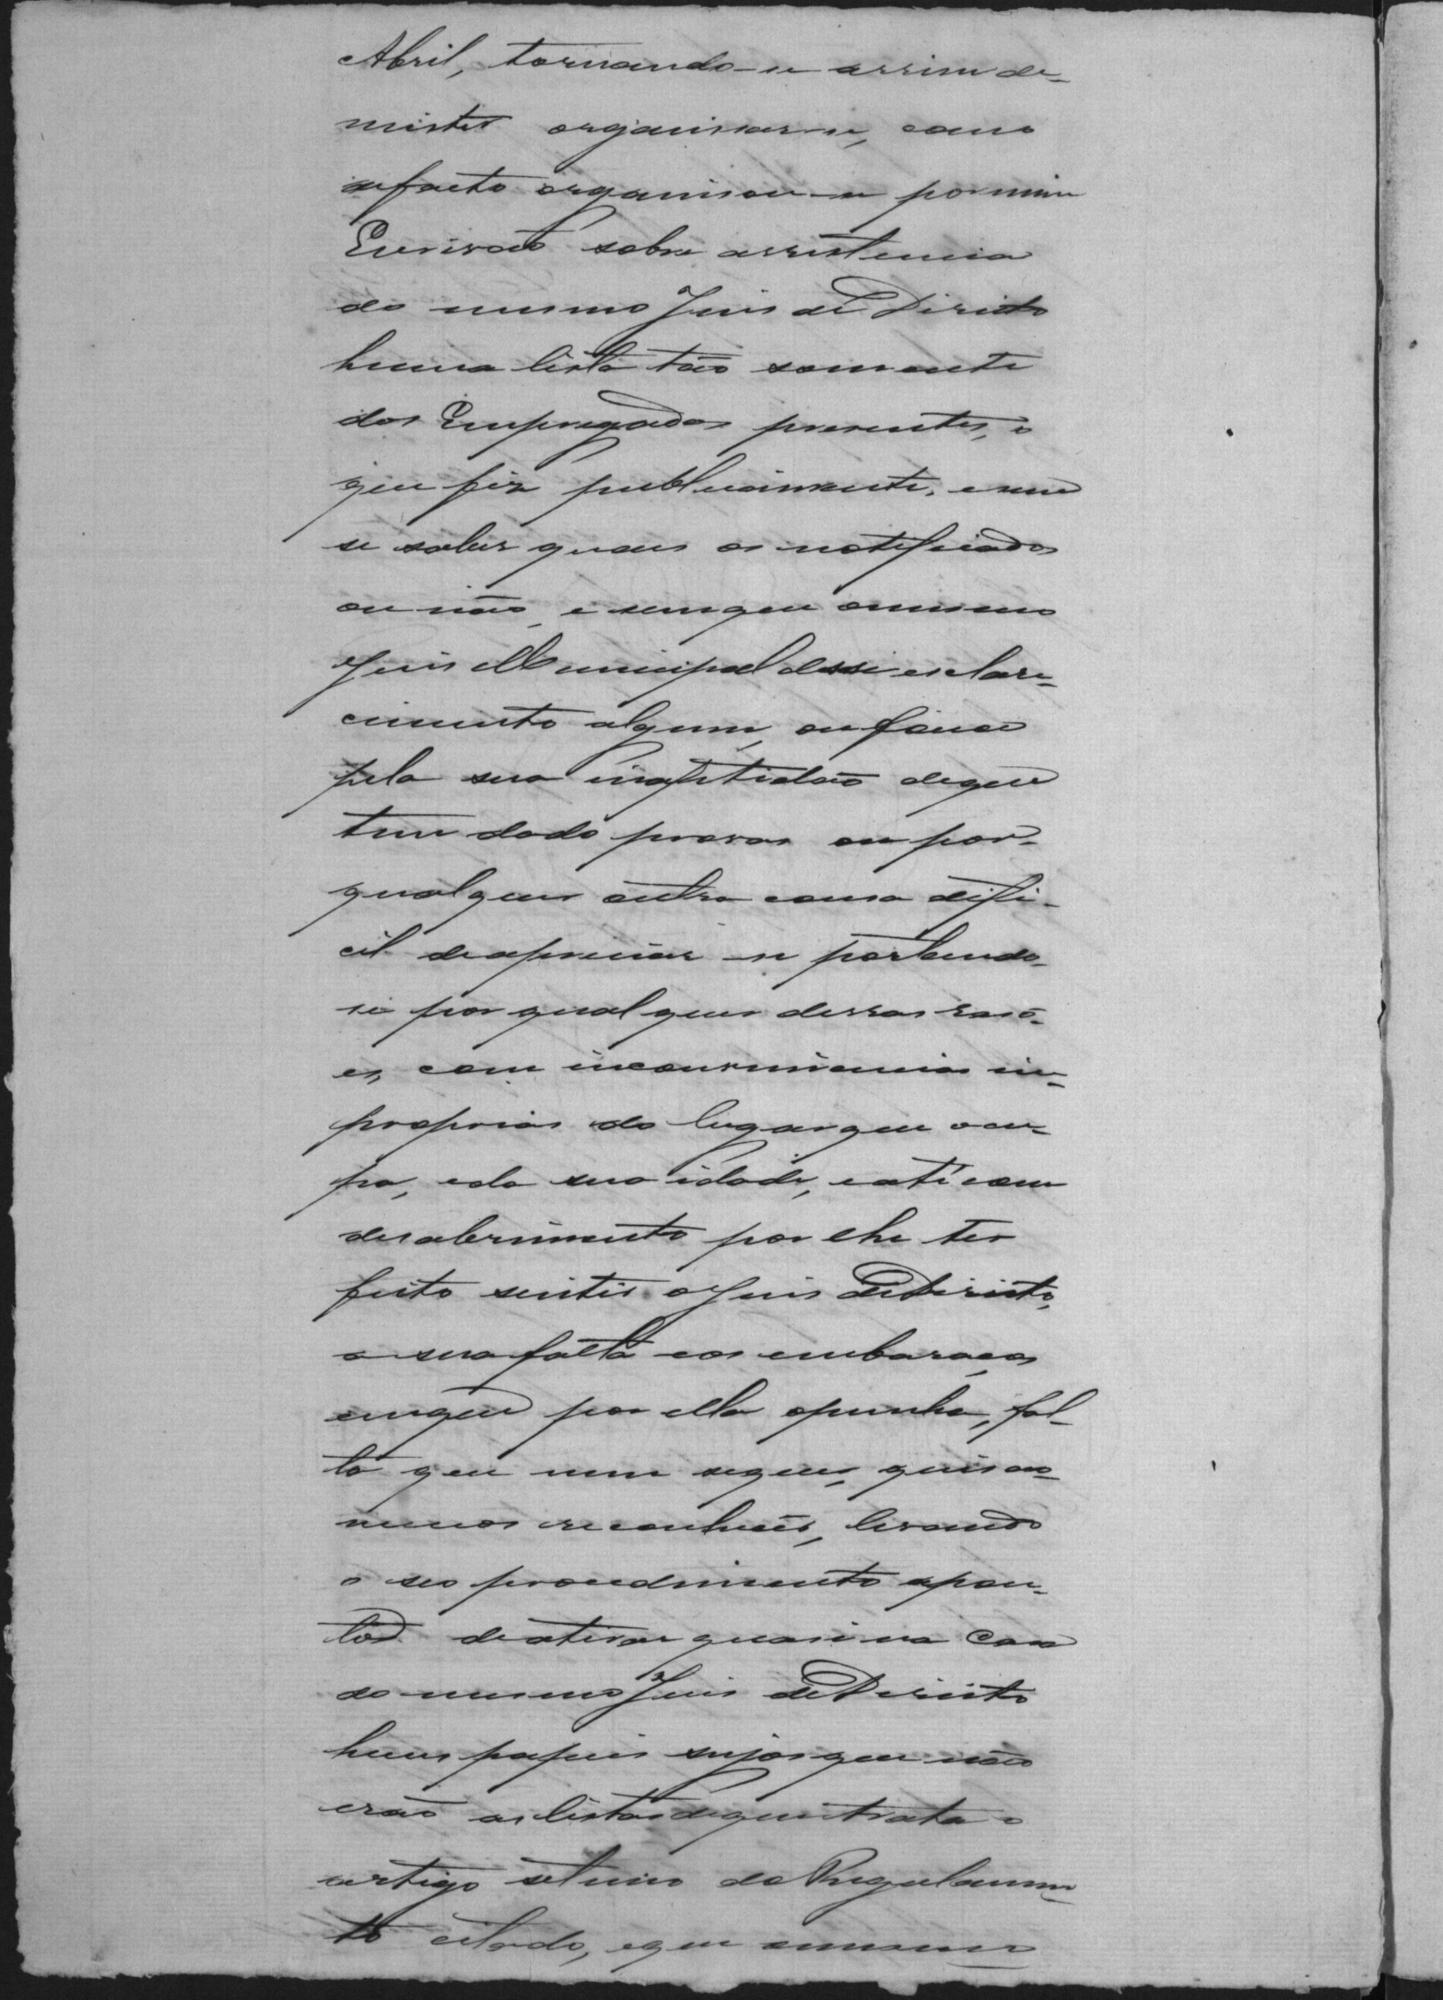 Abril, tornando-se assim de-
mister organisar-se, como
defacto organisou-se por mim
Escrivão sobre assistencia
do mesmo Juis de Direito
huma lista tão somente
dos Empregados presentes, o
que fiz publicamente, e sem
se saber quaes os notificados
ou não, e sem que o mesmo
Juis Municipal desse esclare-
cimento algum, ou fosse
pela sua inaptidão de que
tem dado provas ou por-
qualquer outra causa diffi-
cil de apreciar-se portando-
se por qualquer dessas rasõ-
es, com inconveniencias im-
proprias do lugar que occu-
pa, e da sua idade, e até com
desabrimento por lhe ter
feito sentir o Juis de Direito,
a sua falta e os embaraços
em que por ella o punha, fal-
ta que nem sequer, quis ao-
menos reconhecer, levando
o seo procedimento a pon-
to de atirar quasi na Casa
do mesmo Juis de Direito
huns papeis sujos que não
erão as listas de que trata o
artigo setimo do Regulamen-
to citado, e que o mesmo